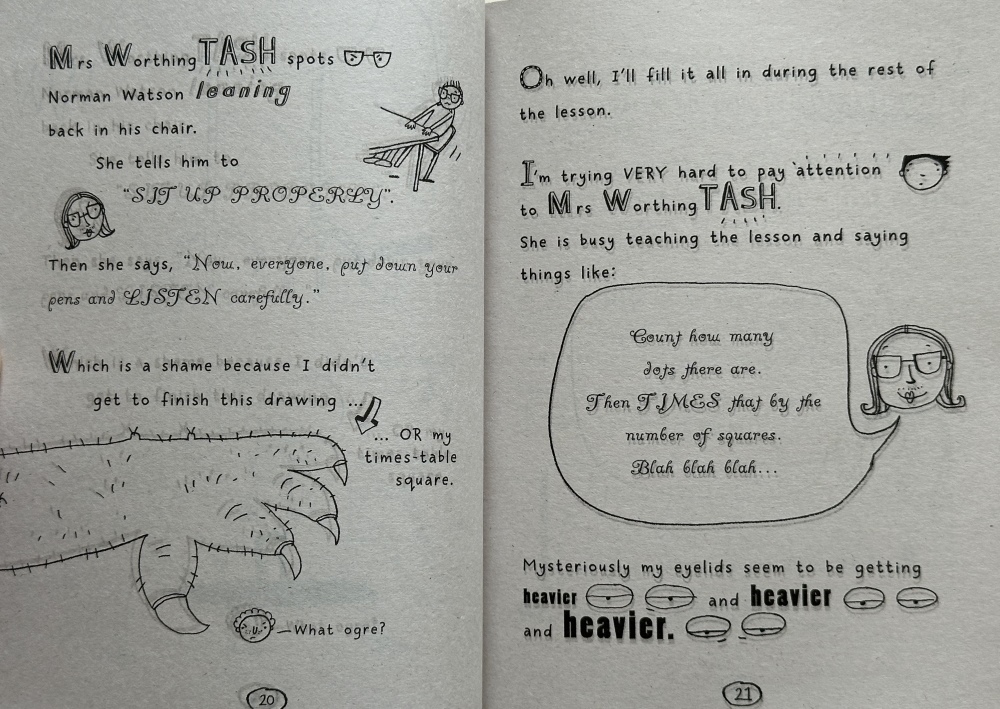 Mrs WorthingTASH spots
Norman Watson leaning
back in his chair.
She tells him to
"SIT UP PROPERLY".
Then she says, "Now, everyone, put down your
pens and LISTEN carefully."
Which is a shame because I didn't
get to finish this drawing ...
... OR my
times-table
square.
What ogre?
20
Oh well, I'll fill it all in during the rest of
the lesson.
I'm trying VERY hard to pay attention
to Mrs WorthingTASH.
She is busy teaching the lesson and saying
things like:
Count how many
dots there are.
Then TIMES that by the
number of squares.
Blah blah blah...
Mysteriously my eyelids seem to be getting
heavier and heavier
and heavier.
21